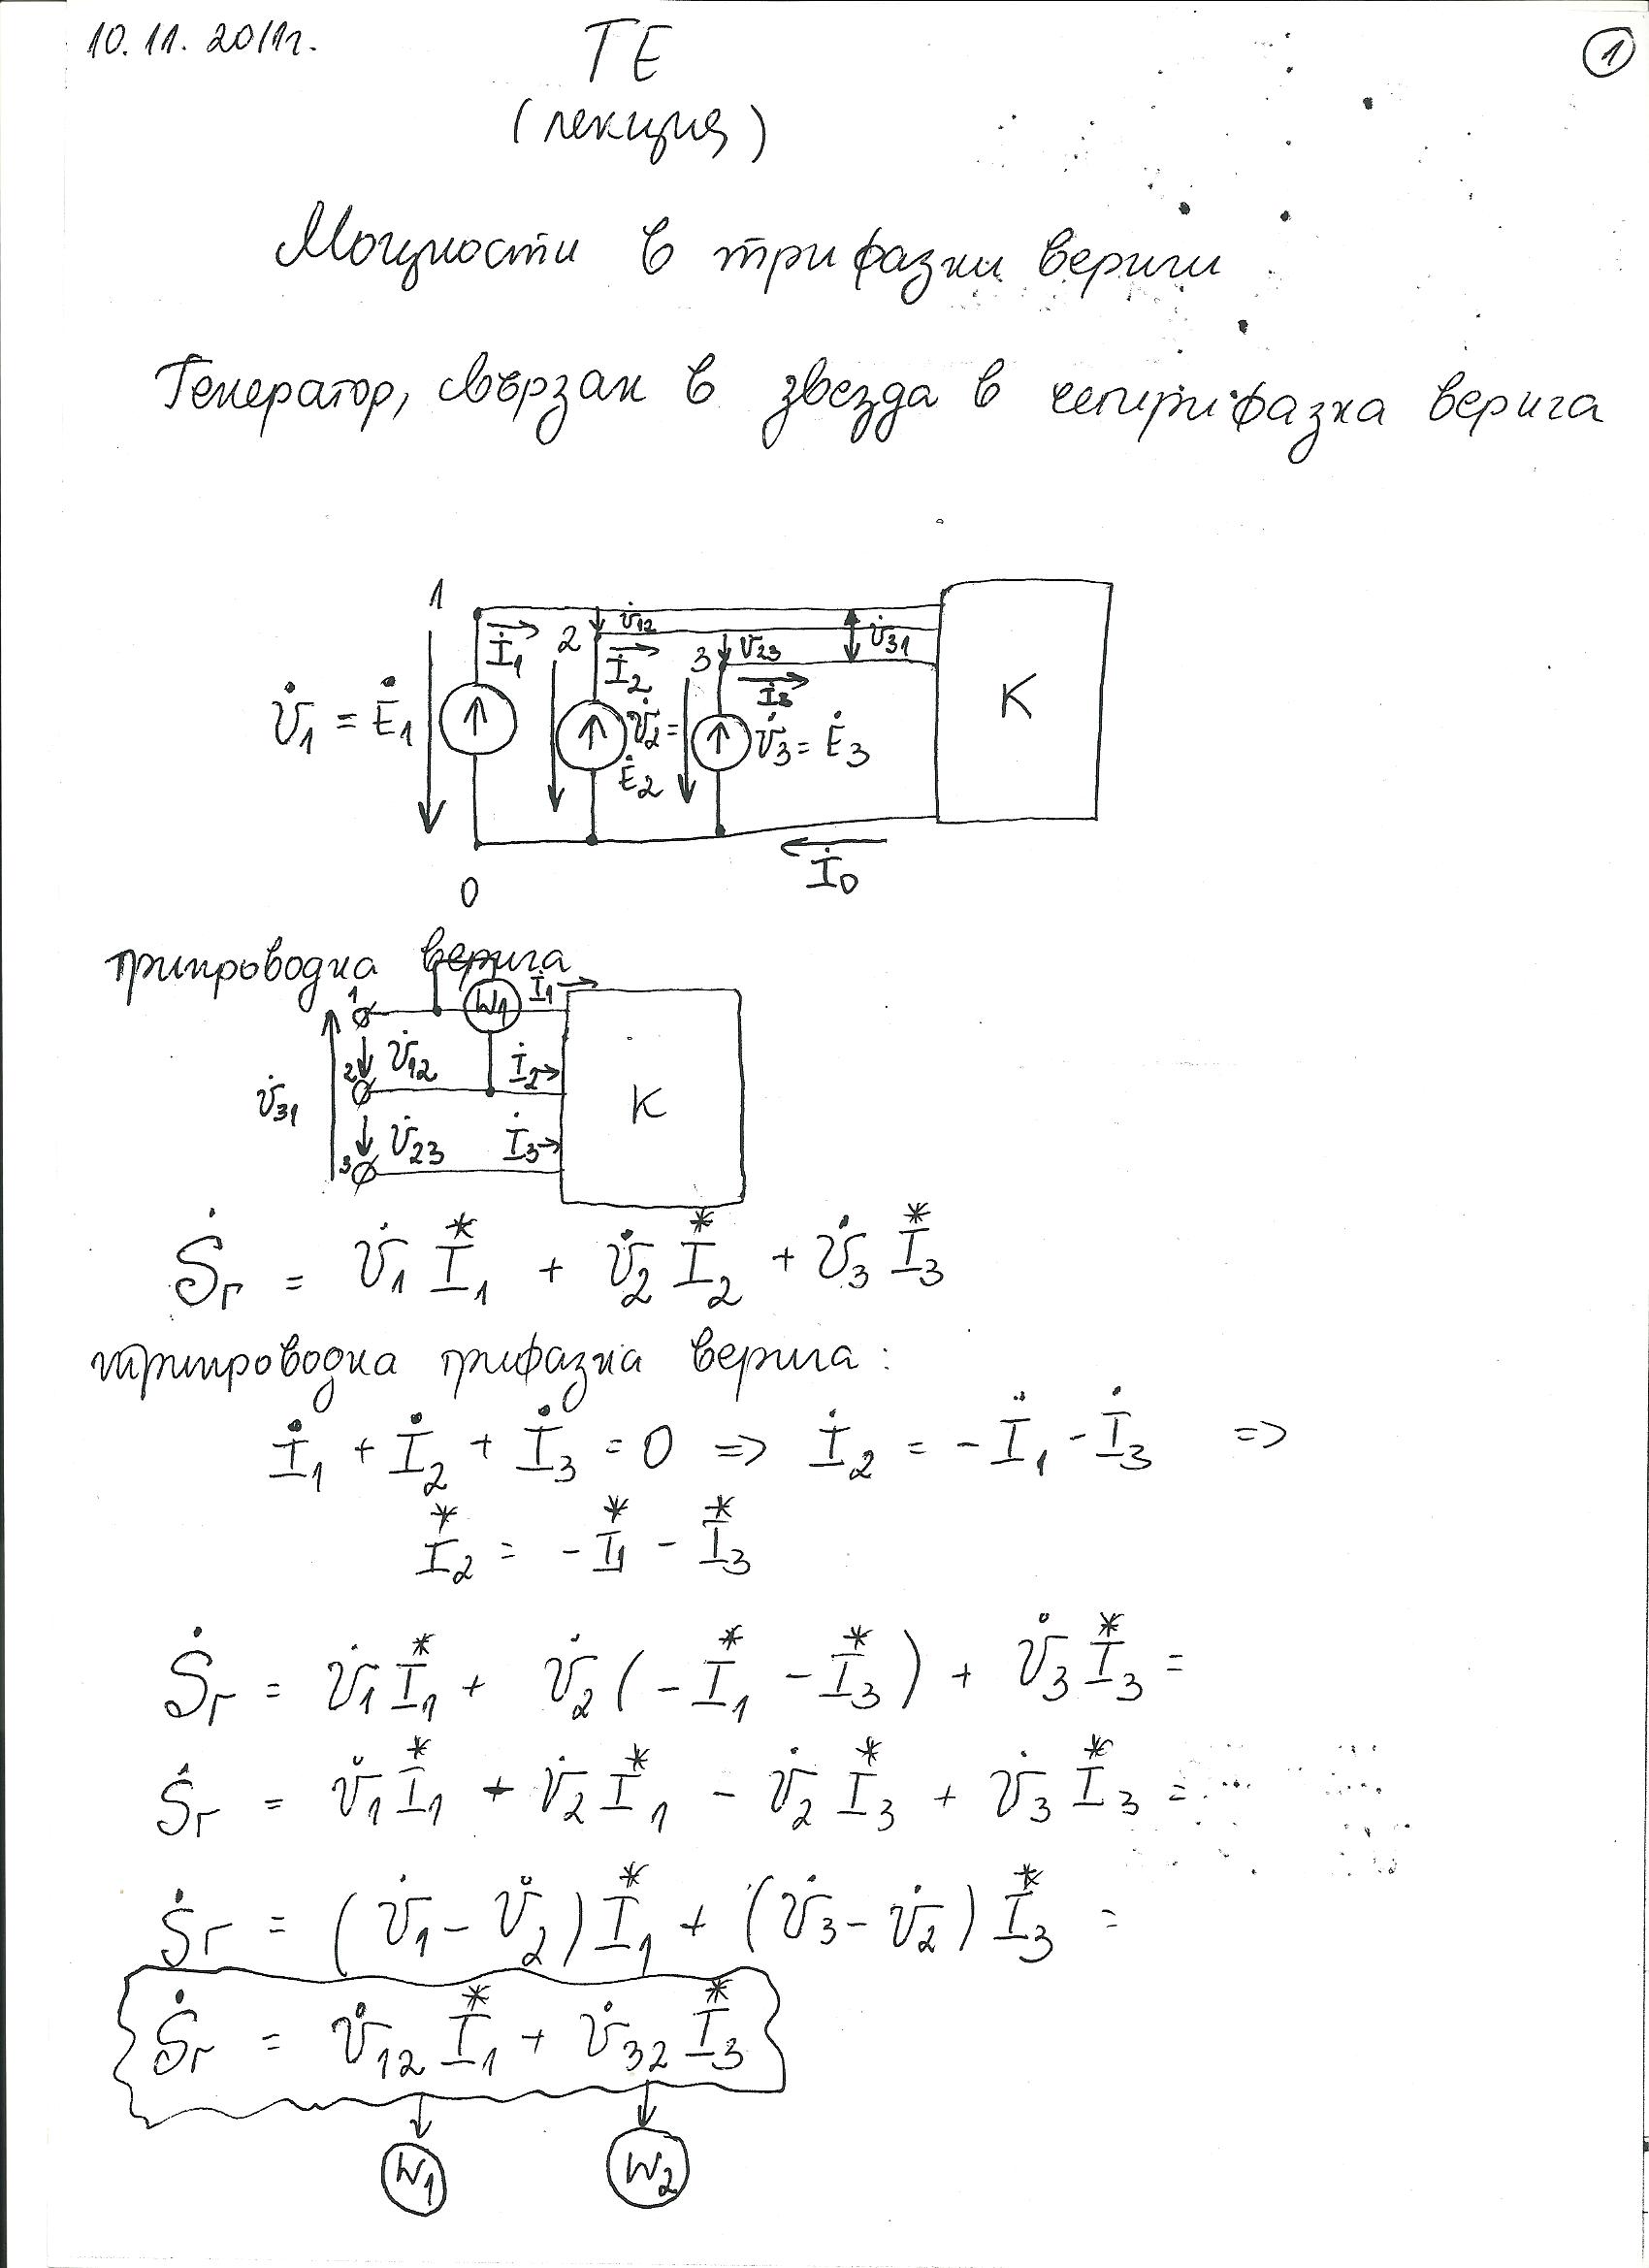 10.11.2011г.
ТЕ
1
(лекция)
Мощности в трифазни вериги
Генератор, свързан в звезда в четирифазна верига
1
İ₁
2
U̇₁₂
İ₂
3
U̇₂₃
İ₃
U̇₃₁
K
U̇₁ = Ė₁
U̇₂ = Ė₂
U̇₃ = Ė₃
0
İ₀
трипроводна верига
1
W₁
İ₁
U̇₁₂
2
İ₂
U̇₃₁
K
U̇₂₃
İ₃
3
Ṡг = U̇₁ I*₁ + U̇₂ I*₂ + U̇₃ I*₃
трипроводна трифазна верига:
İ₁ + İ₂ + İ₃ = 0 => İ₂ = -İ₁ - İ₃ =>
I*₂ = -I*₁ - I*₃
Ṡг = U̇₁ I*₁ + U̇₂ (-I*₁ - I*₃) + U̇₃ I*₃ =
Ṡг = U̇₁ I*₁ - U̇₂ I*₁ - U̇₂ I*₃ + U̇₃ I*₃ =
Ṡг = (U̇₁ - U̇₂) I*₁ + (U̇₃ - U̇₂) I*₃ =
Ṡг = U̇₁₂ I*₁ + U̇₃₂ I*₃
W₁ W₂